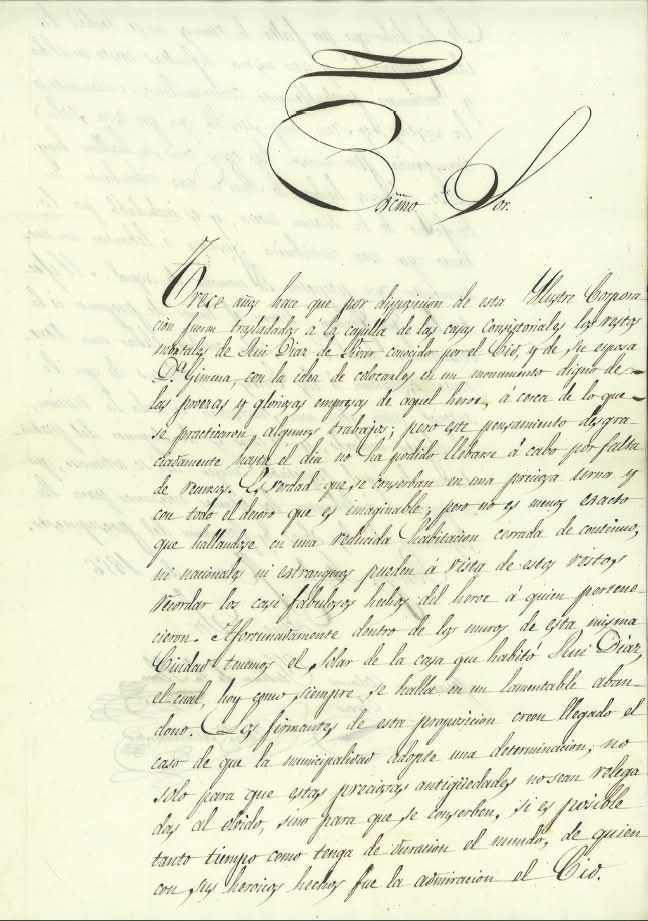 Excmo. Sor.
Trece años hace que por disposicion de esta Illustre Corpora-
cion fueron trasladados á la capilla de las casas consistoriales los restos
mortales de Rui Diaz de Vivar conocido por el Cid, y de su esposa
D.ª Gimena, con la idea de colocarles en un monumento digno de
las proezas y gloriosas empresas de aquel heroe, á cerca de lo que
se practicaron algunos trabajos; pero este pensamiento desgra-
ciadamente hasta el dia no ha podido llebarse á cabo por falta
de recursos. Es verdad que se conserban en una preciosa urna y
con todo el decoro que es imaginable; pero no es menos exacto
que hallandose en una reducida habitacion cerrada de continuo,
ni nacionales ni estrangeros pueden á vista de estos restos
recordar los casi fabulosos hechos del heroe á quien pertene-
cieron. Afortunadamente dentro de los muros de esta misma
Ciudad tenemos el solar de la casa que habitó Rui Diaz,
el cual, hoy como siempre se halla en un lamentable aban-
dono. Los firmantes de esta proposicion creen llegado el
caso de que la municipalidad adopte una determinacion, no
solo para que estas preciosas antigüedades no sean relega-
das al olvido, sino para que se conserben, si es posible
tanto tiempo como tenga de duracion el mundo, de quien
con sus heroicos hechos fue la admiracion el Cid.